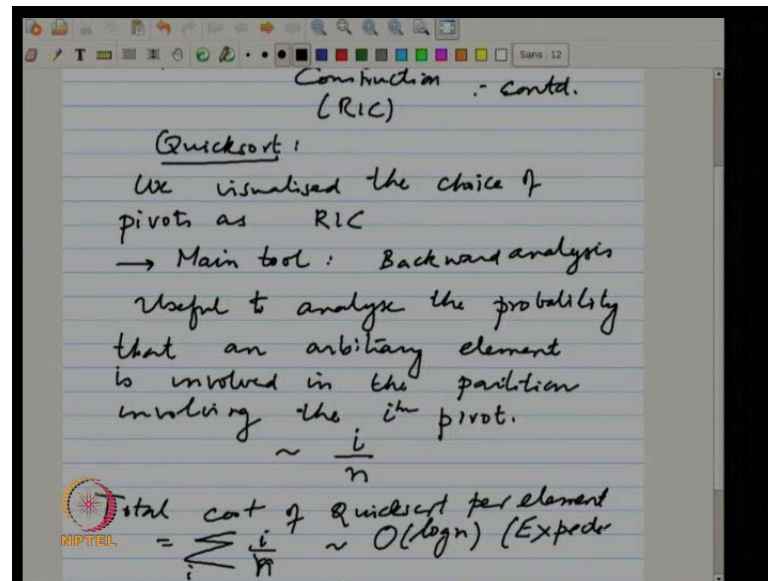 Sans 12
Construction :- contd.
(RIC)
Quicksort :
We visualised the choice of
pivots as RIC
→ Main tool : Backward analysis
Useful to analyse the probability
that an arbitrary element
is involved in the partition
involving the ith pivot.
~ i/n
Total cost of Quicksort per element
= ∑i i/n ~ O(logn) (Expecte
NPTEL